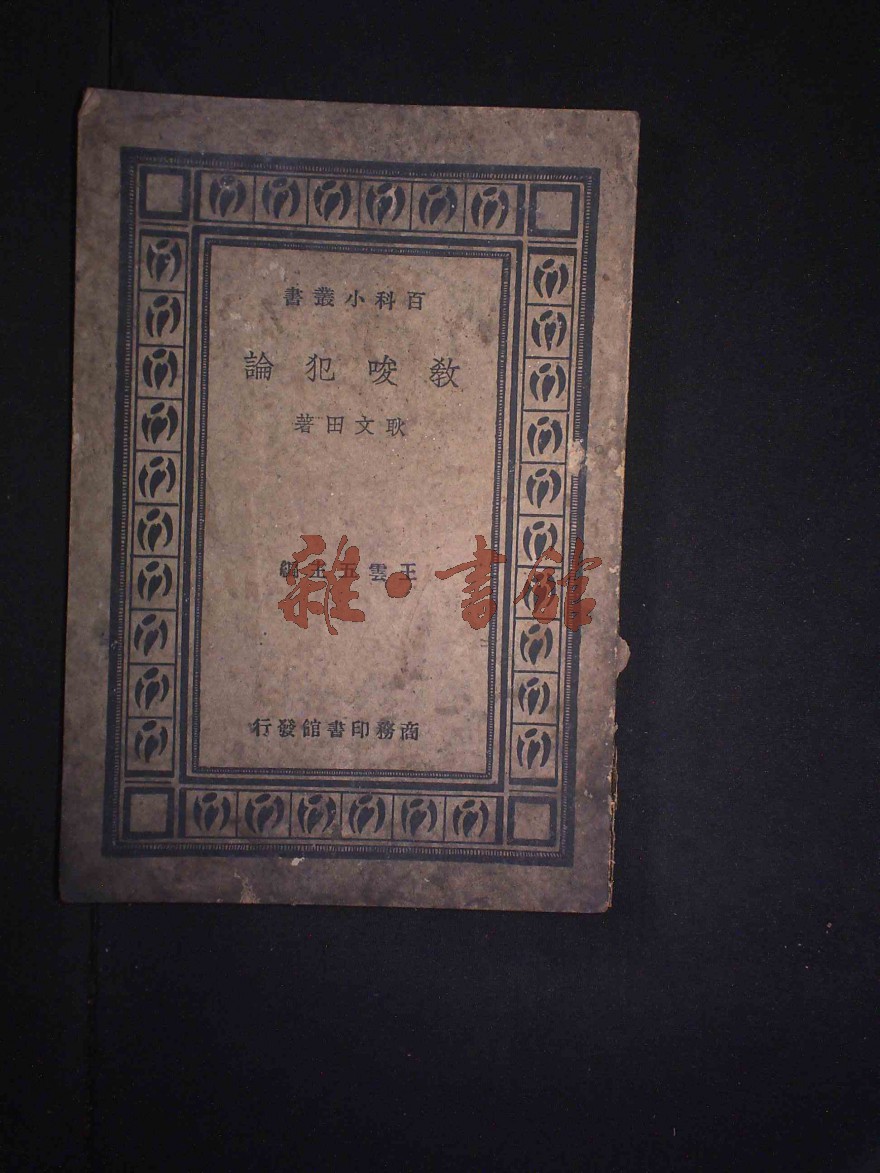 百科小叢書
教唆犯論
耿文田著
王雲五主編
雜·書館
商務印書館發行